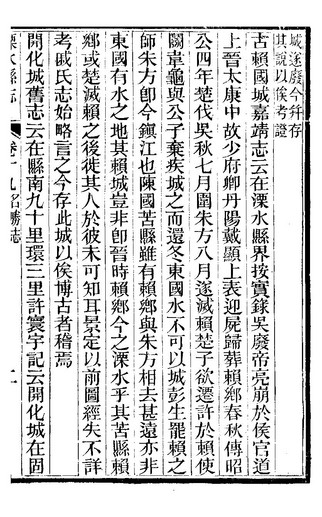 城遂廢今併存
其說以俟考證
古賴國城嘉靖志云在溧水縣界按實錄吳廢帝亮崩於侯官道
上晉太康中故少府卿丹陽戴顒上表迎屍歸葬賴鄉春秋傳昭
公四年楚伐吳秋七月圍朱方八月遂滅賴楚子欲遷許於賴使
鬬韋龜與公子棄疾城之而還冬東國水不可以城彭生罷賴之
師朱方卽今鎮江也陳國苦縣雖有賴鄉與朱方相去甚遠亦非
東國有水之地其賴城豈非卽晉時賴鄉今之溧水乎其苦縣賴
鄉或楚滅賴之後徙其人於彼未可知耳景定以前圖經失不詳
考戚氏志始略言之今存此城以俟博古者稽焉
開化城舊志云在縣南九十里環三里許寰宇記云開化城在固
溧水縣志
卷十九名勝志
二